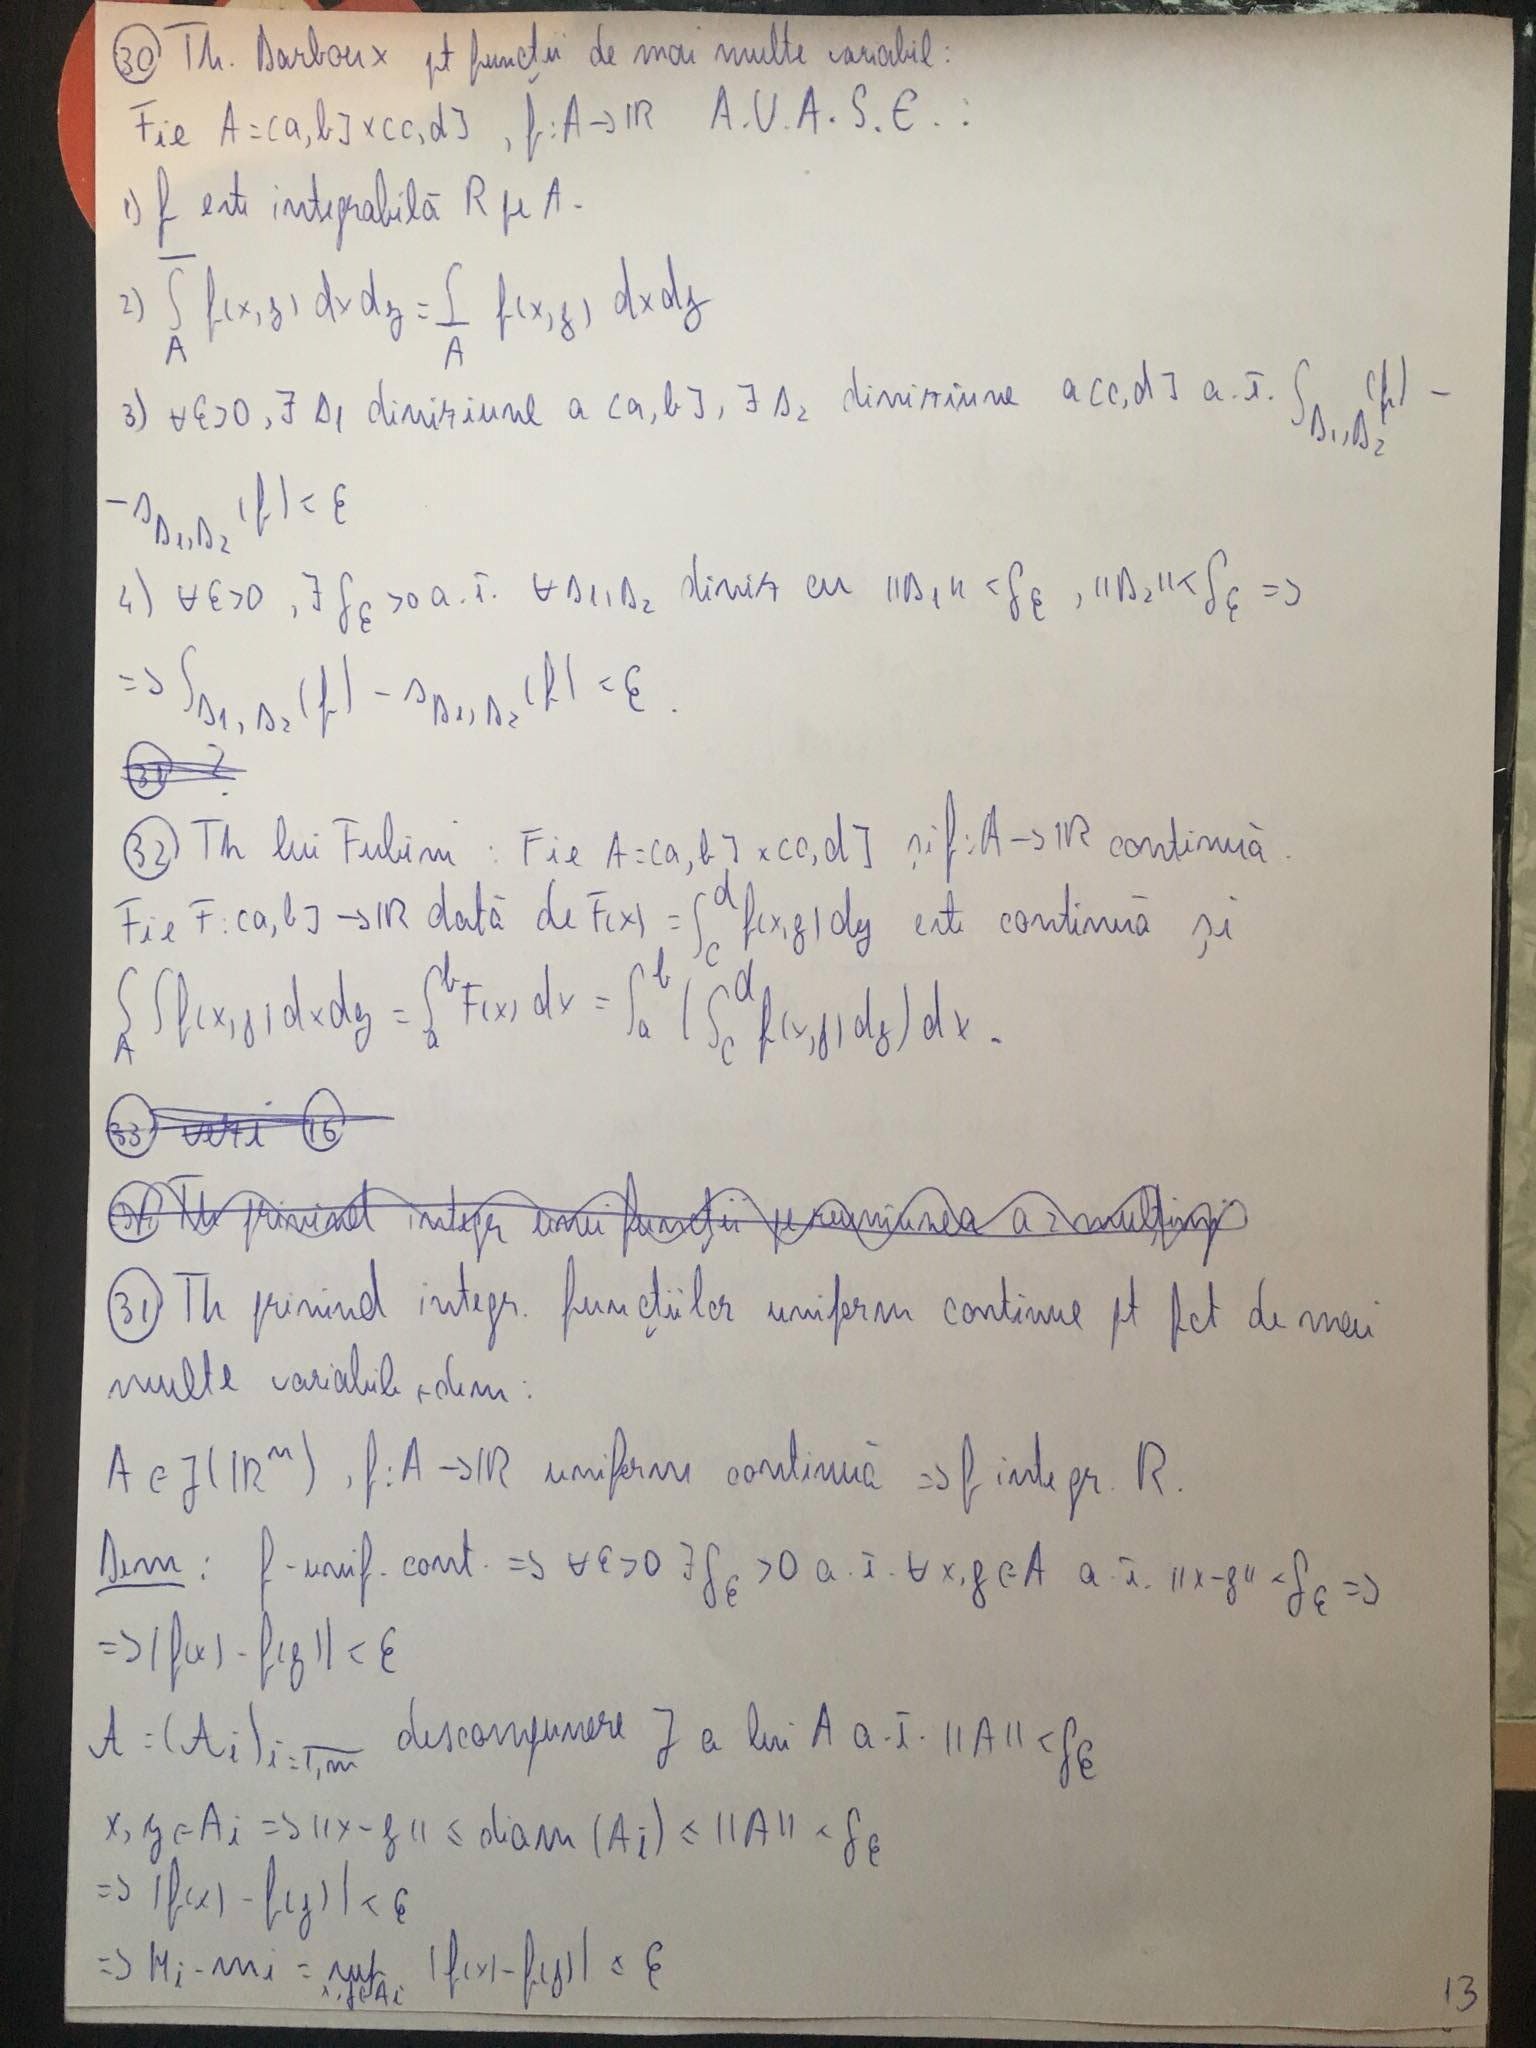 30 Th. Darboux pt funcții de mai multe variabil:
Fie A=[a,b]×[c,d], f:A→ℝ A.U.A.S.E. :
1) f este integrabilă R pe A.
2) ∫̅_A f(x,y) dxdy = ∫̲_A f(x,y) dxdy
3) ∀ε>0, ∃ Δ₁ diviziune a [a,b], ∃ Δ₂ diviziune a [c,d] a.î. S_{Δ₁,Δ₂}(f) -
- s_{Δ₁,Δ₂}(f) < ε
4) ∀ε>0, ∃ δ_ε >0 a.î. ∀ Δ₁,Δ₂ diviz cu ||Δ₁|| < δ_ε, ||Δ₂|| < δ_ε =>
=> S_{Δ₁,Δ₂}(f) - s_{Δ₁,Δ₂}(f) < ε.
31 ?
32 Th lui Fubini : Fie A=[a,b]×[c,d] și f:A→ℝ continuă.
Fie F:[a,b]→ℝ dată de F(x) = ∫_c^d f(x,y)dy este continuă și
∫∫_A f(x,y)dxdy = ∫_a^b F(x) dx = ∫_a^b (∫_c^d f(x,y)dy) dx.
33 vezi 16
34 Th privind integr unei funcții pe reuniunea a 2 mulțimi
31 Th privind integr. funcțiilor uniform continue pt fct de mai
multe variabile + dem:
A ∈ J(ℝⁿ), f:A→ℝ uniform continuă => f integr. R.
Dem: f-unif. cont. => ∀ε>0 ∃ δ_ε >0 a.î. ∀ x,y∈A a.î. ||x-y|| < δ_ε =>
=> |f(x) - f(y)| < ε
A = (A_i)_{i=1,m} descompunere J a lui A a.î. ||A|| < δ_ε
x,y∈A_i => ||x-y|| ≤ diam(A_i) ≤ ||A|| < δ_ε
=> |f(x) - f(y)| < ε
=> M_i - m_i = sup_{x,y∈A_i} |f(x)-f(y)| ≤ ε
13